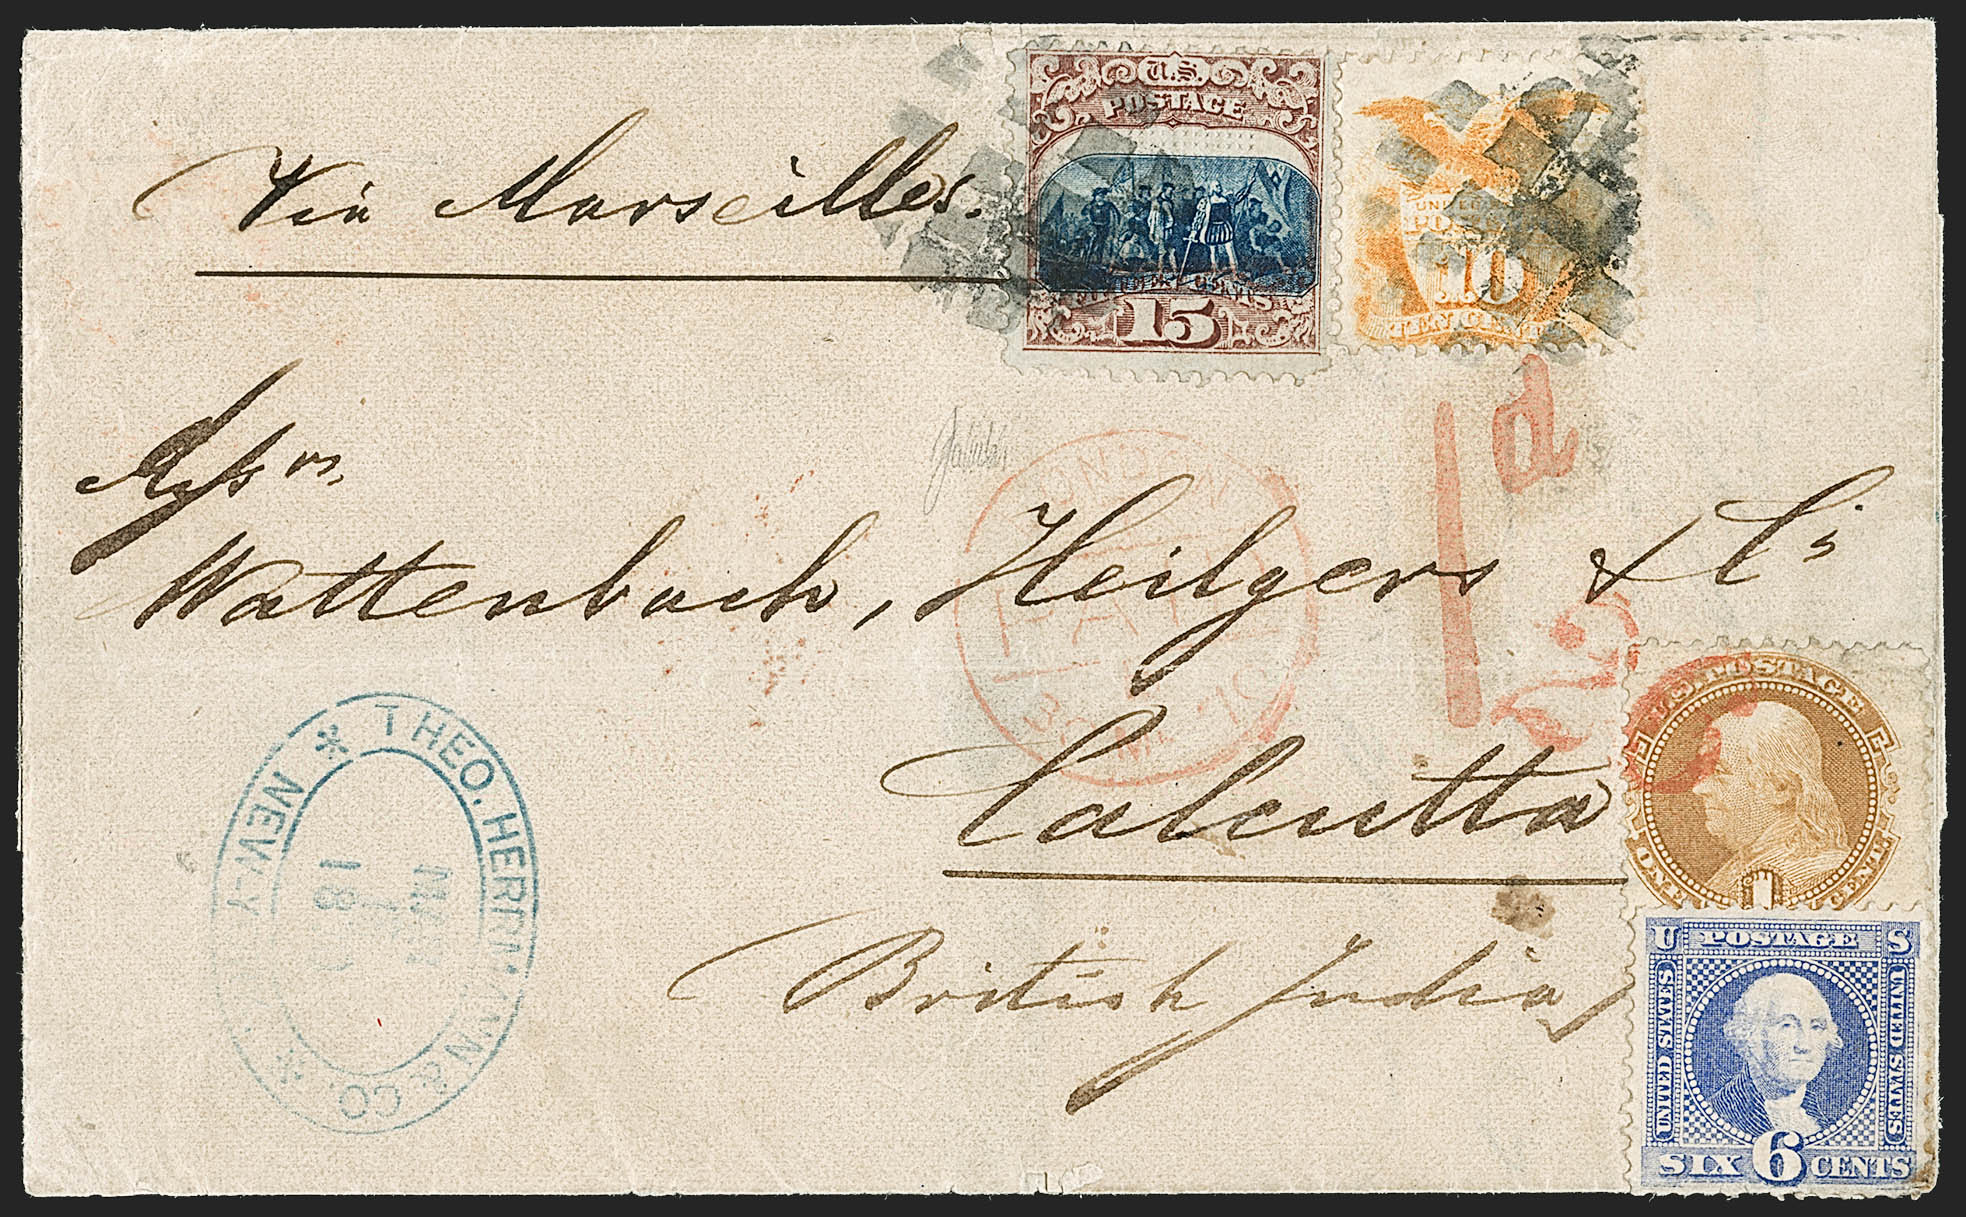 Via Marseilles.
U.S.
POSTAGE
FIFTEEN CENTS
15
UNITED
POSTAGE
10
TEN CENTS
1d
Messrs
Wattenbach, Heilgers & Co
Calcutta
British India
LONDON
PAID
30 MR 70
THEO. HERRMANN & CO.
NEW-Y
MAR
18
U.S. POSTAGE
ONE CENT
1
U POSTAGE S
UNITED STATES
UNITED STATES
SIX 6 CENTS